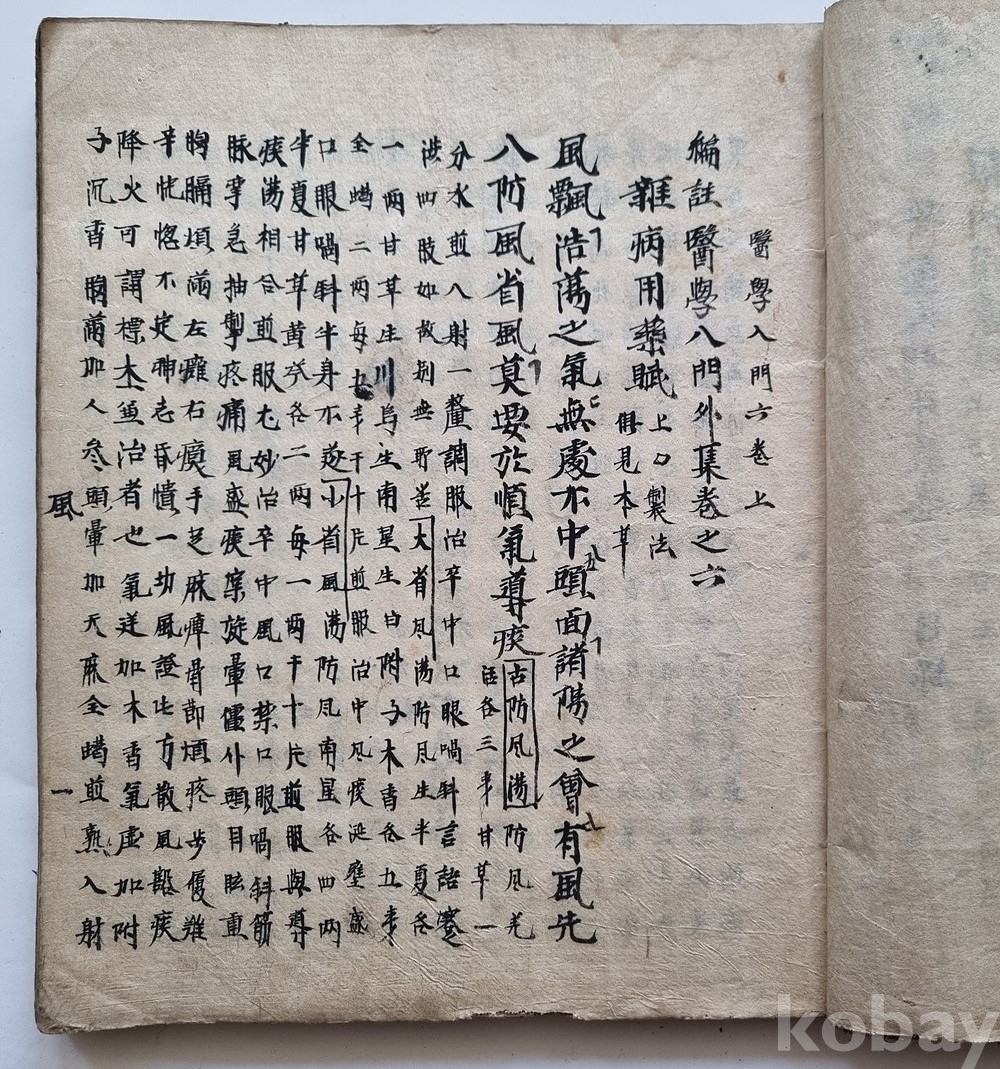 醫學入門六卷上
編註醫學入門外集卷之六
雜病用藥賦
上口製法
俱見本草
風飄浩蕩之氣無處不中頭面諸陽之會有風先
入防風省風莫要於順氣導痰
古防風湯防風羌
活各三手甘草一
分水煎入射一釐調服治卒中口眼喎斜言語蹇
澁四肢如故別無所苦大省風湯防風生半夏各
一兩甘草生川烏生南星生白附子木香各五手
全蝎二兩每五手干十片煎服治中風痰涎壅盛
口眼喎斜半身不遂小省風湯防風南星各四兩
半夏甘草黃芩各二兩每一兩干十片煎服與導
痰湯相合煎服尤妙治卒中風口禁口眼喎斜筋
脉孿急抽掣疼痛風盛痰業旋暈僵仆頭目眩重
胸膈煩滿左癱右瘓手足麻痺骨節煩疼步履難
辛恍惚不定神志昏憒一切風證此方散風豁痰
降火可謂標本兼治者也氣逆加木香氣虛加附
子沉香胸滿加人參頭暈加天麻全蝎煎熟入射
風
一
kobay